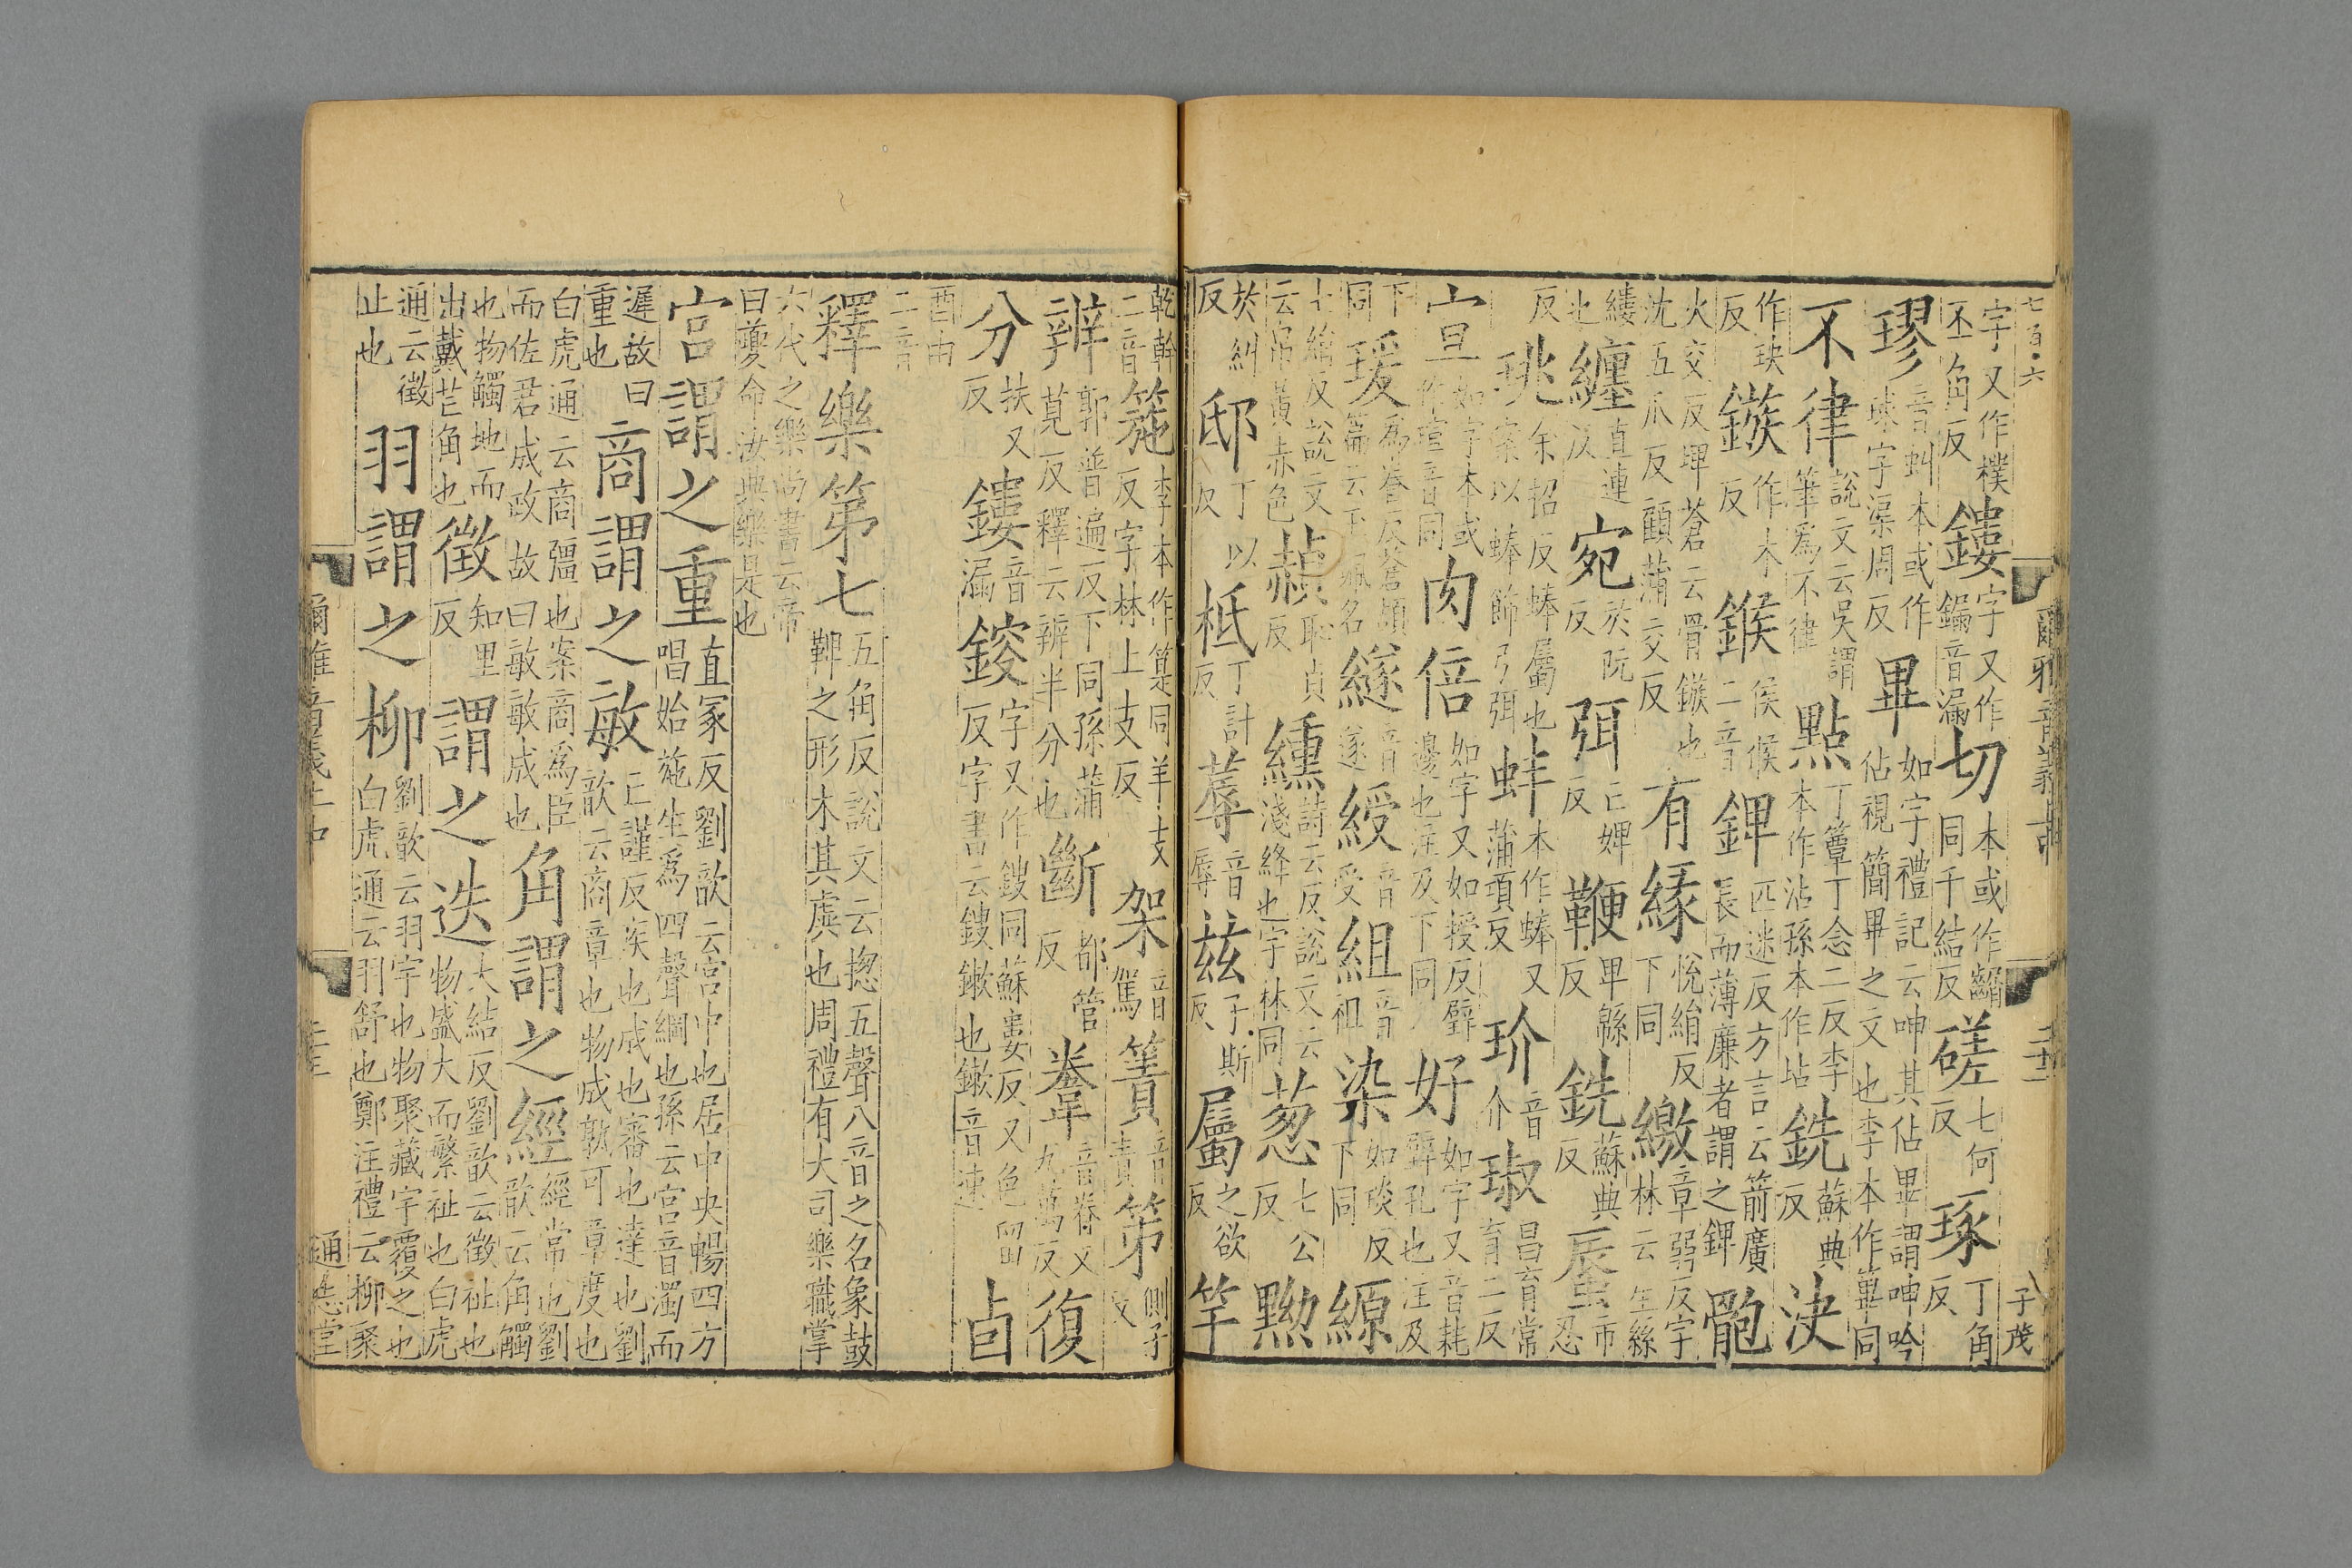 七百・六
爾雅音義上中
二十二
子茂
字又作樸 丕角反 鏤 字又作鏤 音漏 切 本或作𪘏同千結反 磋 七何反 琢 丁角反
璆 音虯本或作球字渠周反 畢 如字禮記云呻其佔畢謂呻吟佔視簡畢之文也李本作篳同
不律 說文云吳謂筆爲不律 點 丁簟丁念二反李本作沾孫本作坫 銑 蘇典反 決
作玦 反 鏃 作木反 鍭 侯候二音 鎞 匹迷反方言云箭廣長而薄廉者謂之鎞 骲
火交反埤蒼云骨鏃也沈五爪反顧蒲交反 有緣 悅絹反下同 繳 章弱反字林云生絲
縷也 纏 直連反 宛 於阮反 弭 亡婢反 鞭 卑緜反 銑 蘇典反 蜃 市忍
反 珧 余招反蜯屬也案以蜯飾弓弭 蚌 本作蜯又蒲項反 玠 音介 琡 昌育常育二反
宣 如字本或作瑄音同 肉倍 如字又如授反璧邊也注及下同 好 如字又音耗璧孔也注及
下同 瑗 爲眷反蒼頡篇云玉佩名 繸 音遂 綬 音受 組 音祖 染 如琰反下同 縓
七絹反說文云帛黃赤色 赬 恥貞反 纁 詩云反說文云淺絳也字林同 葱 七公反 黝
於糾反 邸 丁以次 柢 丁計反 蓐 音辱 兹 子斯反 屬 之欲反 竿
乾幹二音 箷 李本作箟同羊支反字林上支反 架 音駕 簀 音責 第 側子反
辨 郭普遍反下同孫蒲莧反釋云辨半分也 斷 都管反 韏 音眷又九萬反 復
分 扶又反 鏤 音漏 鎪 字又作鎪同蘇婁反又色留反字書云鎪鏉也鏉音速 卣
酉由二音
釋樂第七 五角反說文云揔五聲八音之名象鼓鞞之形木其虡也周禮有大司樂職掌
六代之樂尚書云帝曰夔命汝典樂是也
宮謂之重 直冢反劉歆云宮中也居中央暢四方唱始施生爲四聲綱也孫云宮音濁而
遲故曰重也 商謂之敏 亡謹反疾也成也審也達也劉歆云商章也物成孰可章度也
白虎通云商彊也案商爲臣而佐君成政故曰敏敏成也 角謂之經 經常也劉歆云角觸
也物觸地而出戴芒角也 徵 知里反 謂之迭 大結反劉歆云徵祉也物盛大而繁祉也白虎
通云徵止也 羽謂之柳 劉歆云羽宇也物聚藏宇覆之也白虎通云羽舒也鄭注禮云柳聚
爾雅音義上中
通志堂